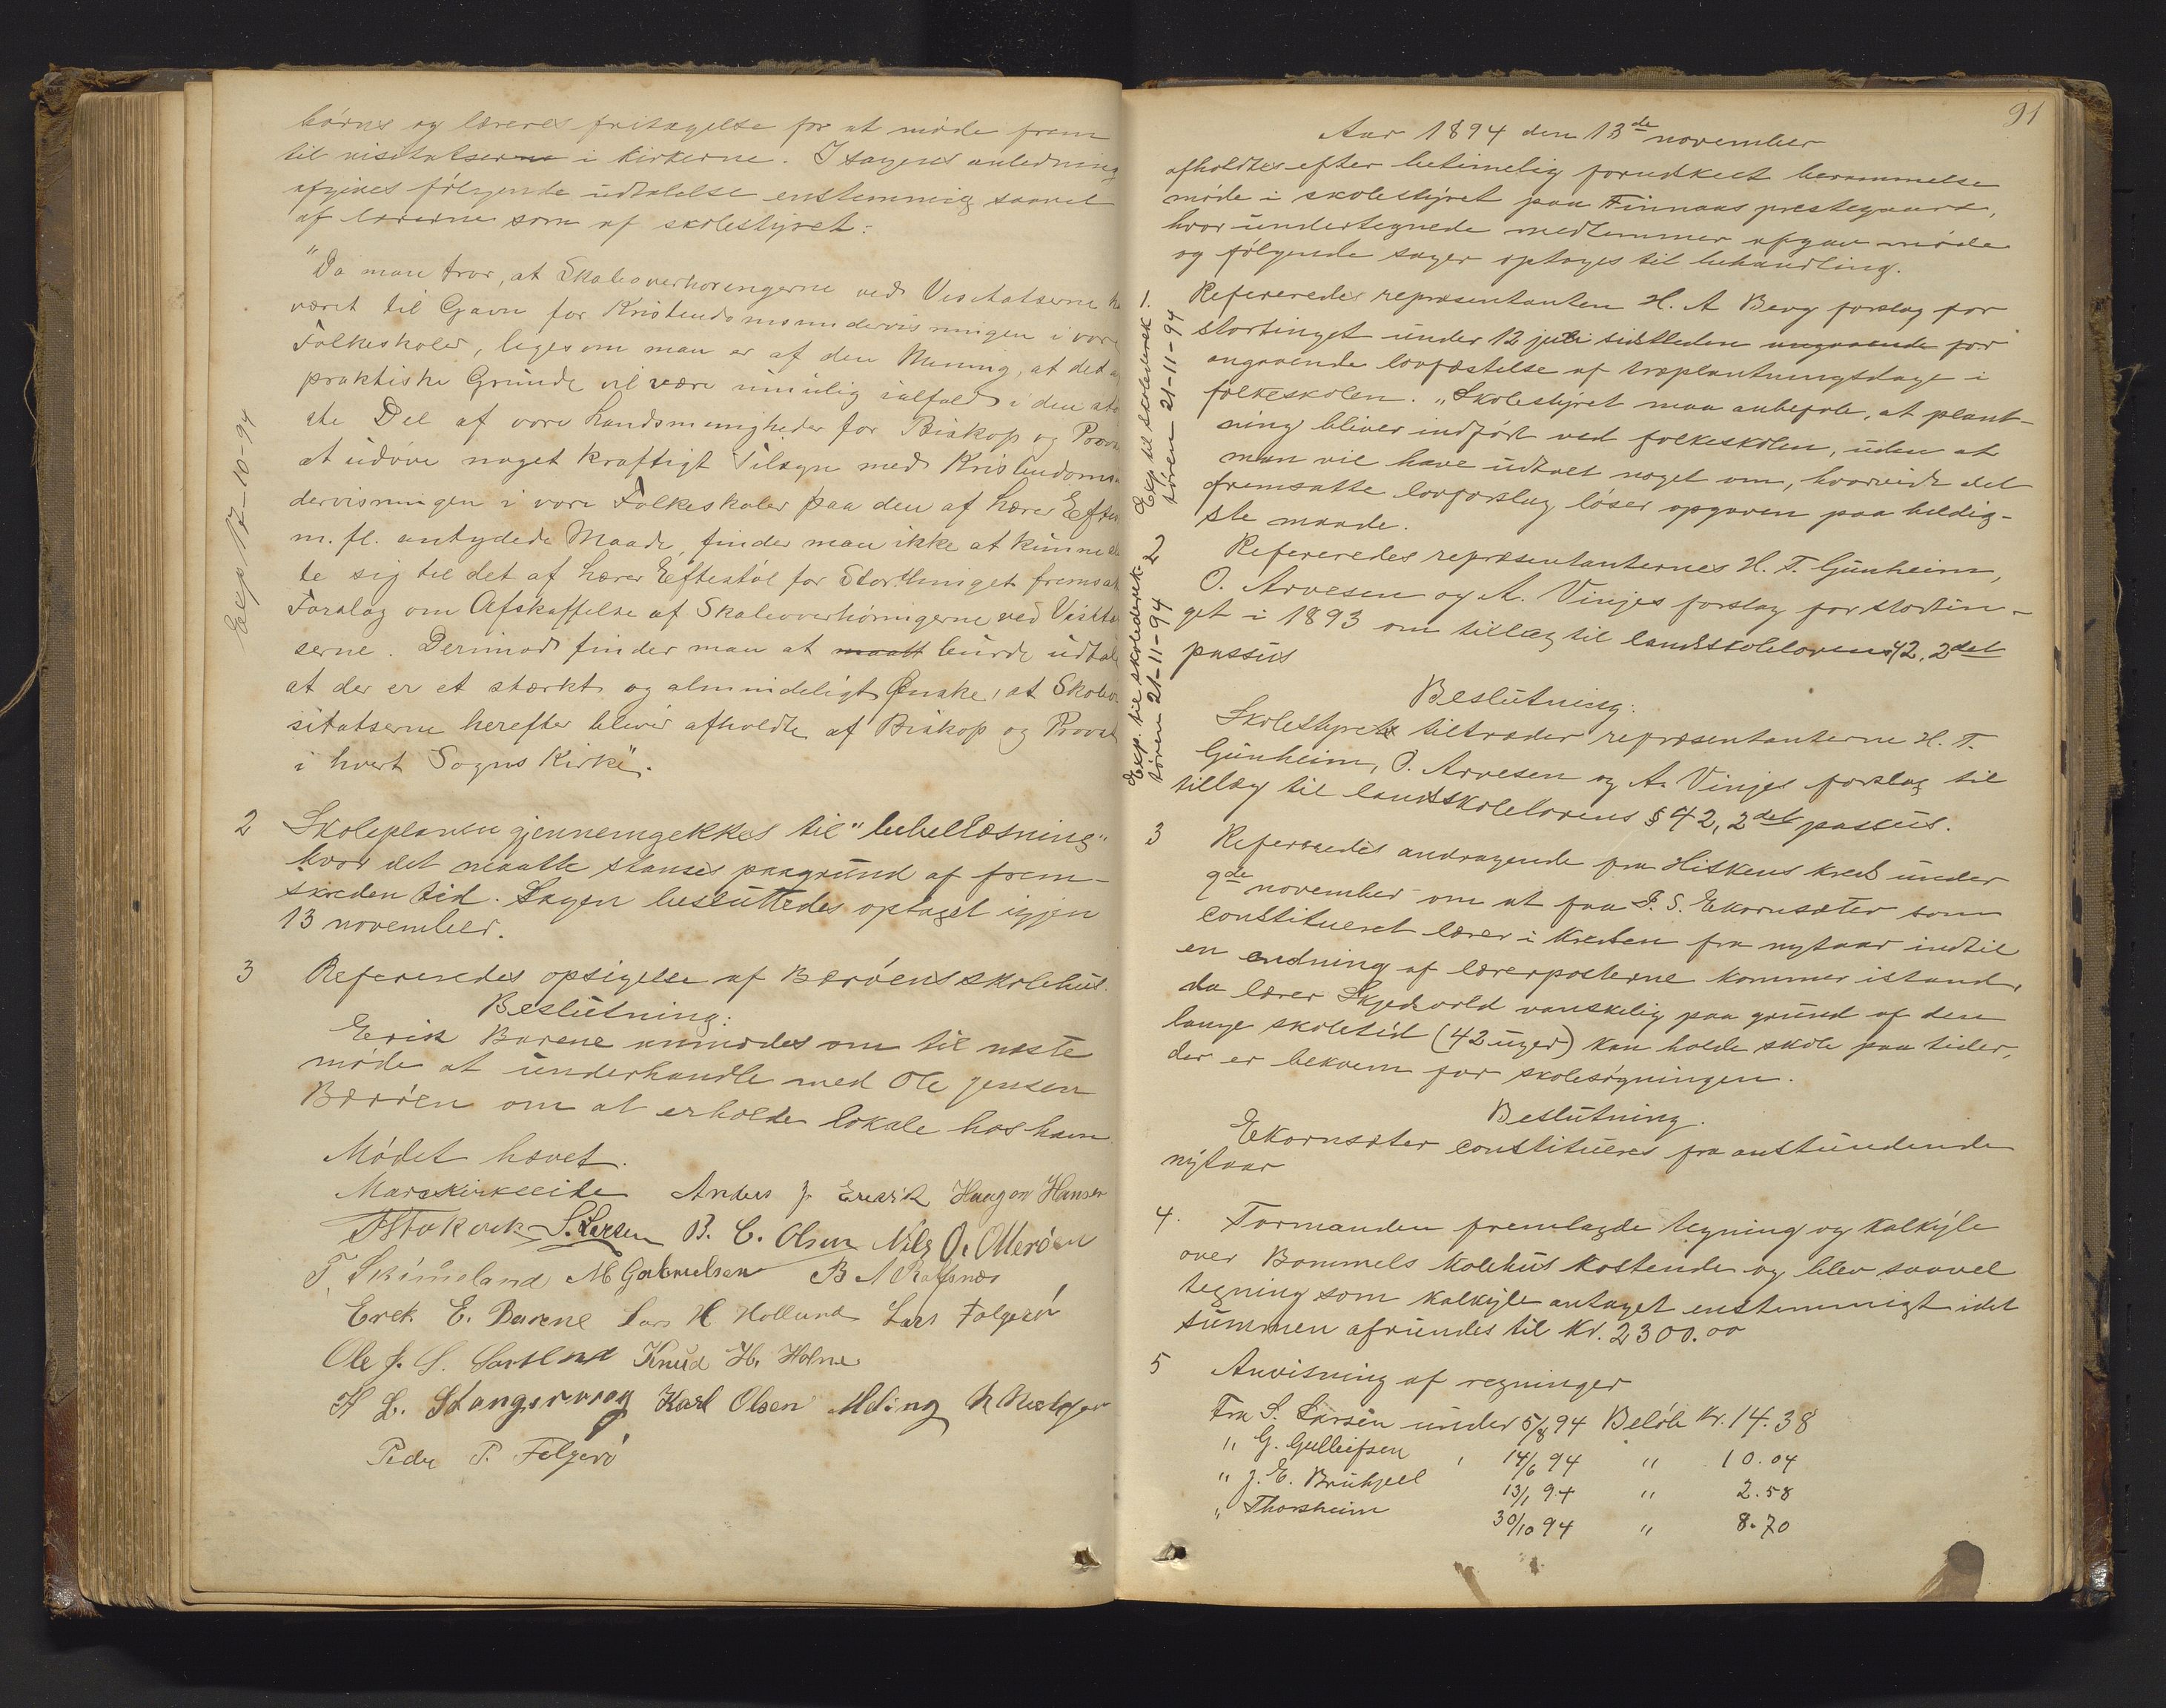 børns og læreres fritagelse for at møde frem
til visitatserne i kirkerne. I sagens anledning
afgives følgende udtalelse enstemmig saavel
af lærerne som af skolestyret:
"Da man tror, at Skoleoverhøringerne ved Visitatserne ha
været til Gavn for Kristendomsundervisningen i vore
Folkeskoler, ligesom man er af den Mening, at det a
praktiske Grunde vil være umulig ialfald i den stø
ste Del af vore Landsmenigheder for Biskop og Provst
at udøve noget kraftigt Tilsyn med Kristendoms
dervisningen i vore Folkeskoler paa den af Lærer Eftes
m. fl. antydede Maade, finder man ikke at kunne
te sig til det af Lærer Eftestøl for Storthinget fremsat
Forslag om Afskaffelse af Skoleoverhøringerne ved Visita
serne. Derimod finder man at maatt burde udtale
at der er et stærkt og almindeligt Ønske, at Skolev
sitatserne herefter bliver afholdte af Biskop og Provst
i hvert Sogns Kirke".
Exp 17-10-94
2 Skoleplanen gjennemgekkes til "bibellæsning"
hvor det maatte stanses paagrund af frem-
skreden tid. Sagen besluttedes optaget igjen
13 november.
3 Refereredes opsigelse af Bærøens skolehus.
Beslutning:
Erik Barene anmodes om til næste
møde at underhandle med Ole Jensen
Bærøen om at erholde lokale hos ham.
Mødet hævet.
Marøkirkeeide Anders J. Haagen Hansen
S. Larsen B. C. Olsen Nils O. Olterøen
T. Skimeland M Gabrielsen B N Rolfsnes
Erek E. Barene Lars H. Holland Lars Folgerø
Ole J. S. Knud H. Holme
H L. Stangervaag Karl Olsen Meling
Peder P. Folgerø
91
Aar 1894 den 13de november
afholdtes efter betimelig forudkeet berammelse
møde i skolestyret paa Finnaas prestegaard,
hvor undertegnede medlemmer afgav møde
og følgende sager optoges til behandling.
1. Refereredes repræsentanten H. A Berg forslag for
stortinget under 12 juli sidstleden angaaende for
angaaende lovfæstelse af træplantningsdage i
folkeskolen. "Skolestyret maa anbefale, at plant-
ning bliver indført ved folkeskolen, uden at
man vil have udtalt noget om, hvorvidt det
fremsatte lovforslag løser opgaven paa heldig-
ste maade.
Exp til skoledirek
tøren 21-11-94
2 Refereredes repræsentanternes H. T. Gunheim,
O. Arvesen og A. Vinjes forslag for stortin-
get i 1893 om tillæg til landsskolelovens 42, 2det
passus
Exp. til skoledirek-
tøren 21-11-94
Beslutning:
Skolestyret tiltræder repræsentanterne H. T.
Gunheim, O. Arvesen og A. Vinjes forslag til
tillæg til landsskolelovens § 42, 2det passus.
3 Refereredes andragende fra Hiskens kreds under
9de november om at faa J. S. Ekornsæter som
constitueret lærer i Kredsen fra nytaar indtil
en endning af lærerposterne kommer istand,
da lærer Skjedsvold vanskelig paa grund af den
lange skoletid (42 uger) kan holde skole paa tider,
der er bekvem for skolesøgningen.
Beslutning.
Ekornsæter constitueres fra anstundende
nytaar
4. Formanden fremlagde tegning og kalkyle
over Bømmels skolehus kostende og blev saavel
tegning som kalkyle antaget enstemmigt idet
summen afrundes til Kr. 2300.00
5 Anvisning af regninger
Fra S. Larsen under 5/8 94 Beløb Kr. 14.38
" G. Gulleifsen " 14/6 94 " 10.04
" J. E. Bruhjell 13/1 94 " 2.58
" Thorsheim 30/10 94 " 8.70